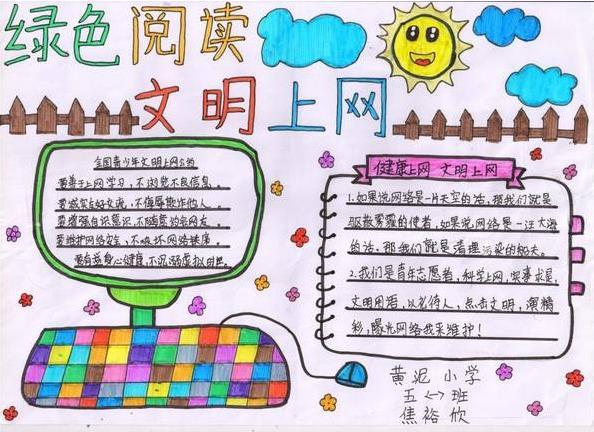 绿色阅读
文明上网
全国青少年文明上网公约
要善于上网学习，不浏览不良信息。
要诚实友好交流，不侮辱欺诈他人。
要增强自护意识，不随意约会网友。
要维护网络安全，不破坏网络秩序。
要有益身心健康，不沉溺虚拟时空。
健康上网 文明上网
1.如果说网络是一片天空的话，那我们就是
驱散雾霾的使者，如果说网络是一汪大海
的话，那我们就是清理污染的夫。
2.我们是青年志愿者，科学上网，实事求是，
文明用语，以礼待人，点击文明，演精
彩，阳光网络我来维护！
黄泥小学
五<一>班
焦裕欣